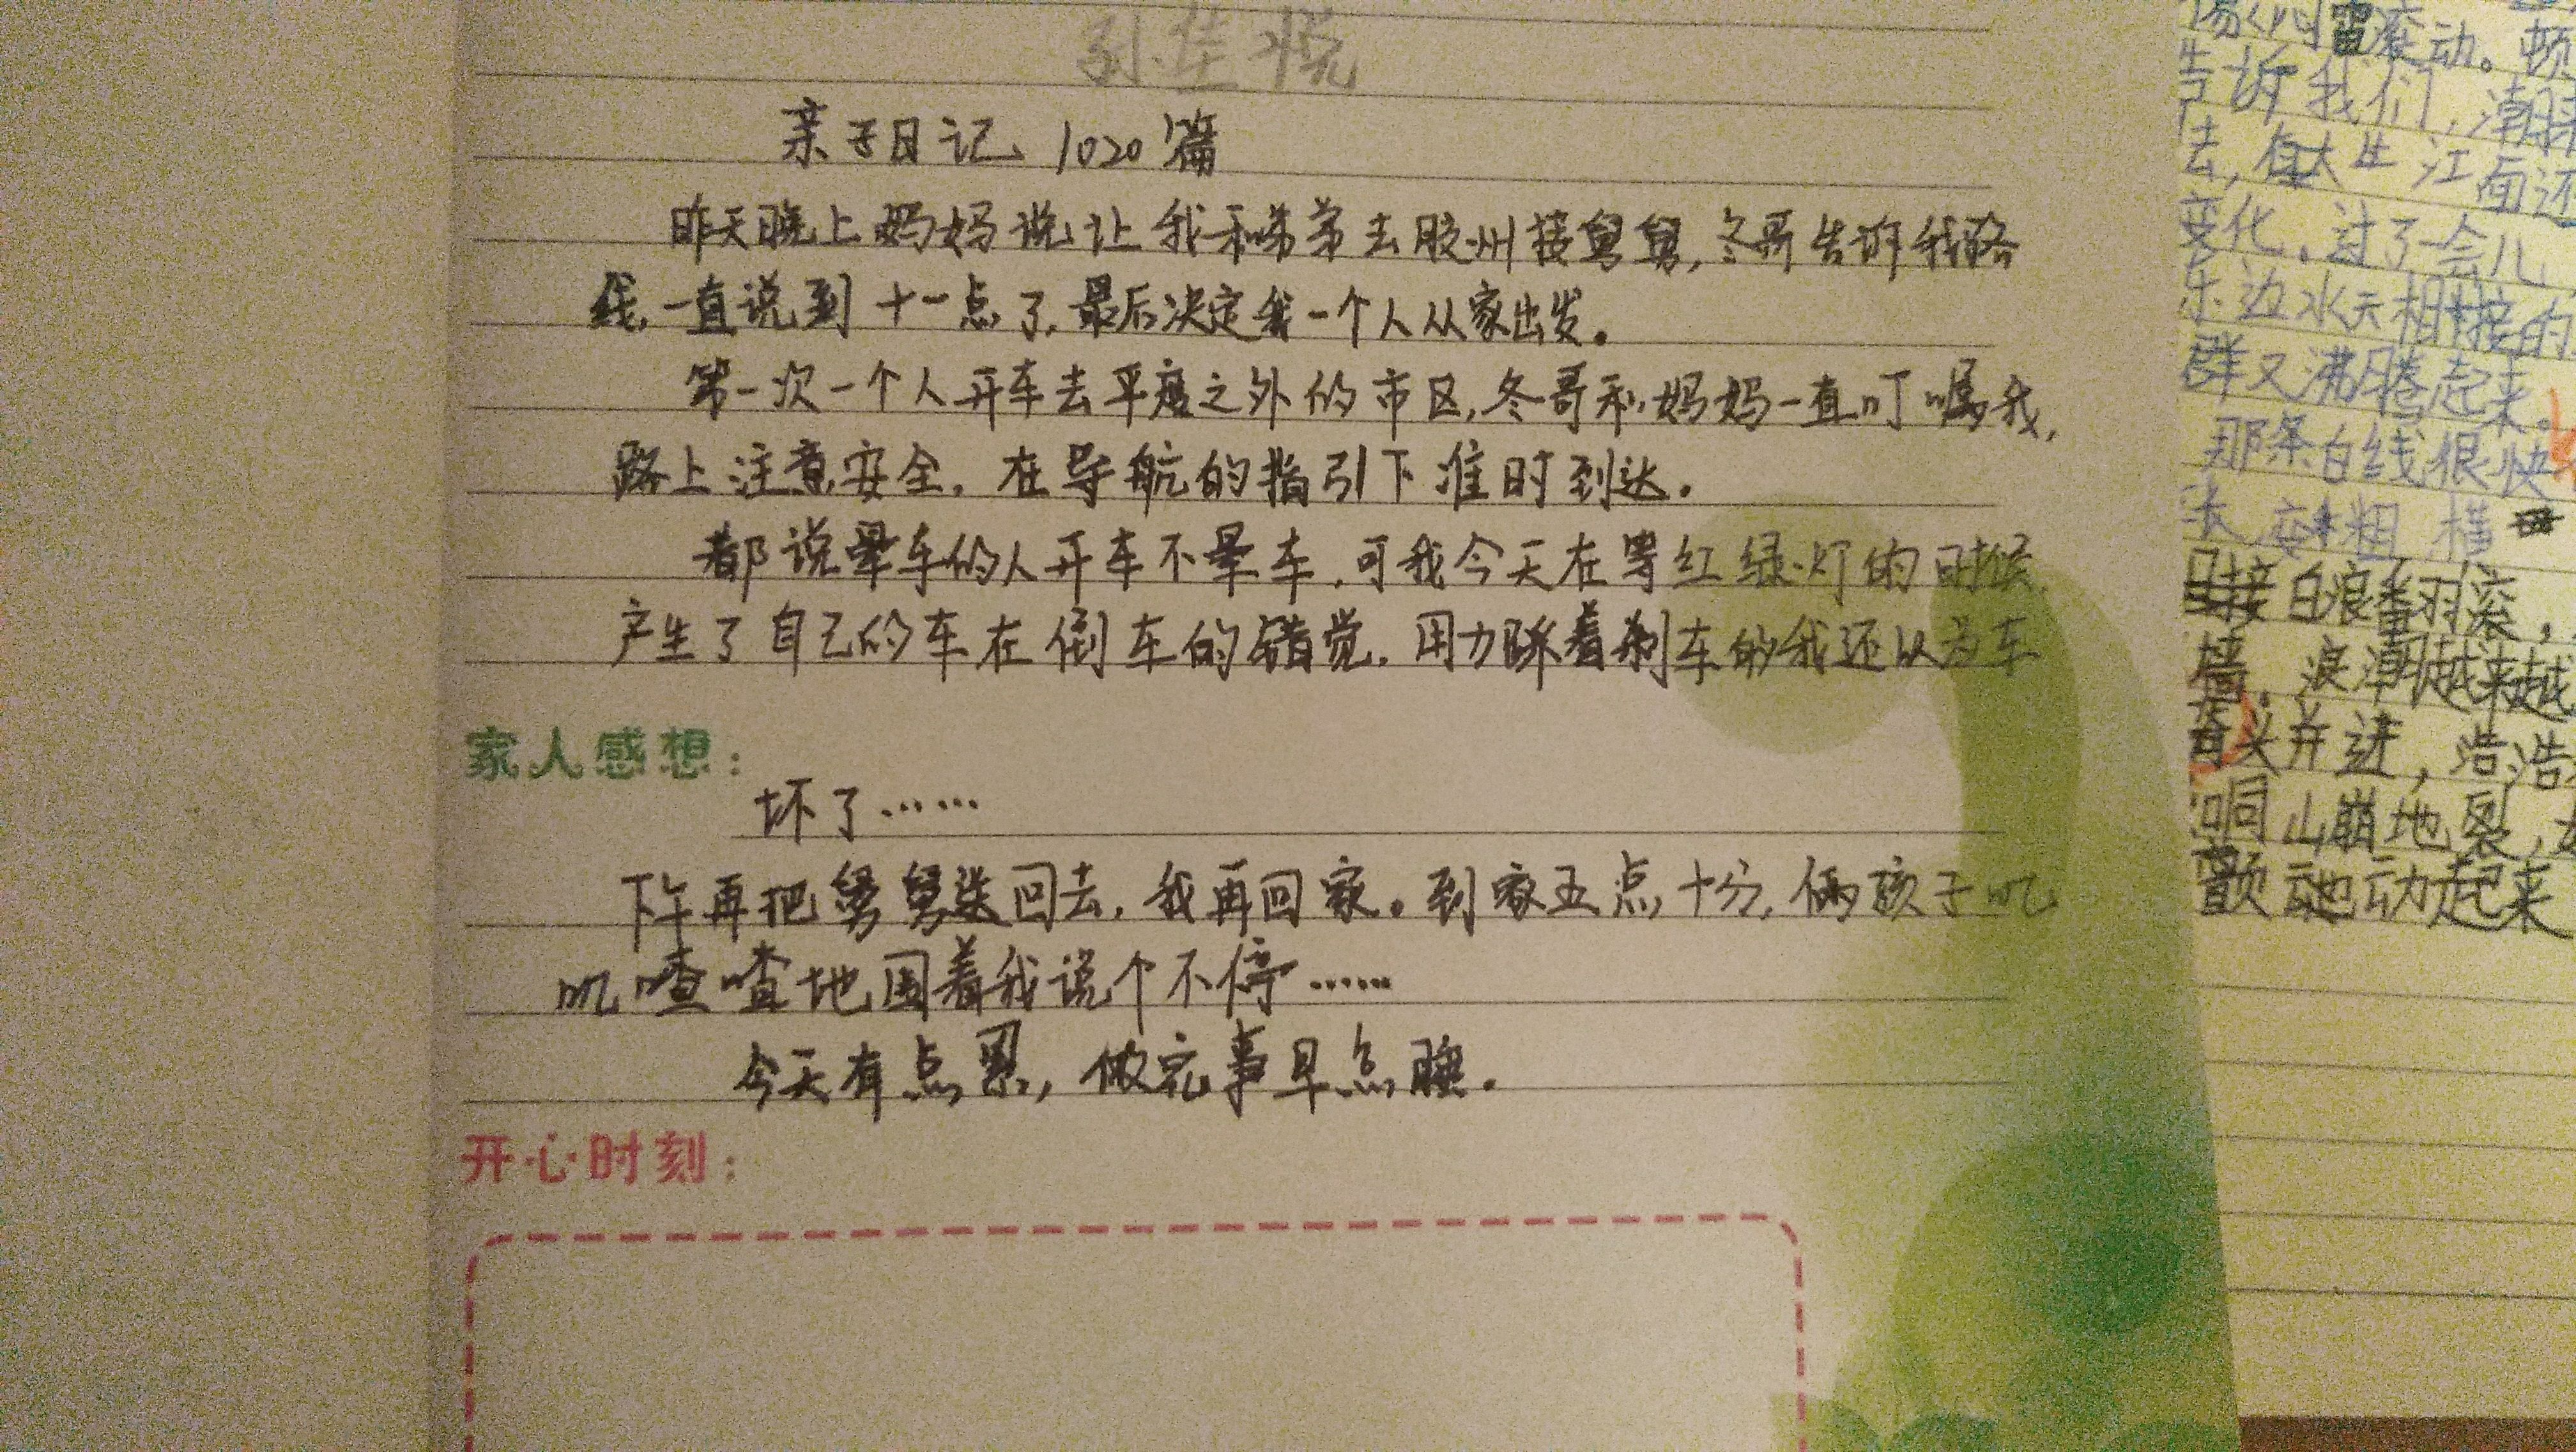 孙佳悦
亲子日记 1020篇
昨天晚上妈妈说让我和弟弟去胶州接舅舅,冬哥告诉我路
线,一直说到十一点了,最后决定我一个人从家出发。
第一次一个人开车去平度之外的市区,冬哥和妈妈一直叮嘱我,
路上注意安全。在导航的指引下准时到达。
都说晕车的人开车不晕车,可我今天在等红绿灯的时候,
产生了自己的车在倒车的错觉,用力踩着刹车的我还以为车
家人感想:
坏了……
下午再把舅舅送回去,我再回家。到家五点十分,俩孩子叽
叽喳喳地围着我说个不停……
今天有点累,做完事早点睡。
开心时刻:
雷滚动。顿
告诉我们,潮
去,江面还
变化,过了一会儿,
东边水天相接的
群又沸腾起来。
那条白线很快
长,变粗,横
白浪翻滚,
墙。浪潮越来越
齐头并进,浩浩
如同山崩地裂,
颤动起来